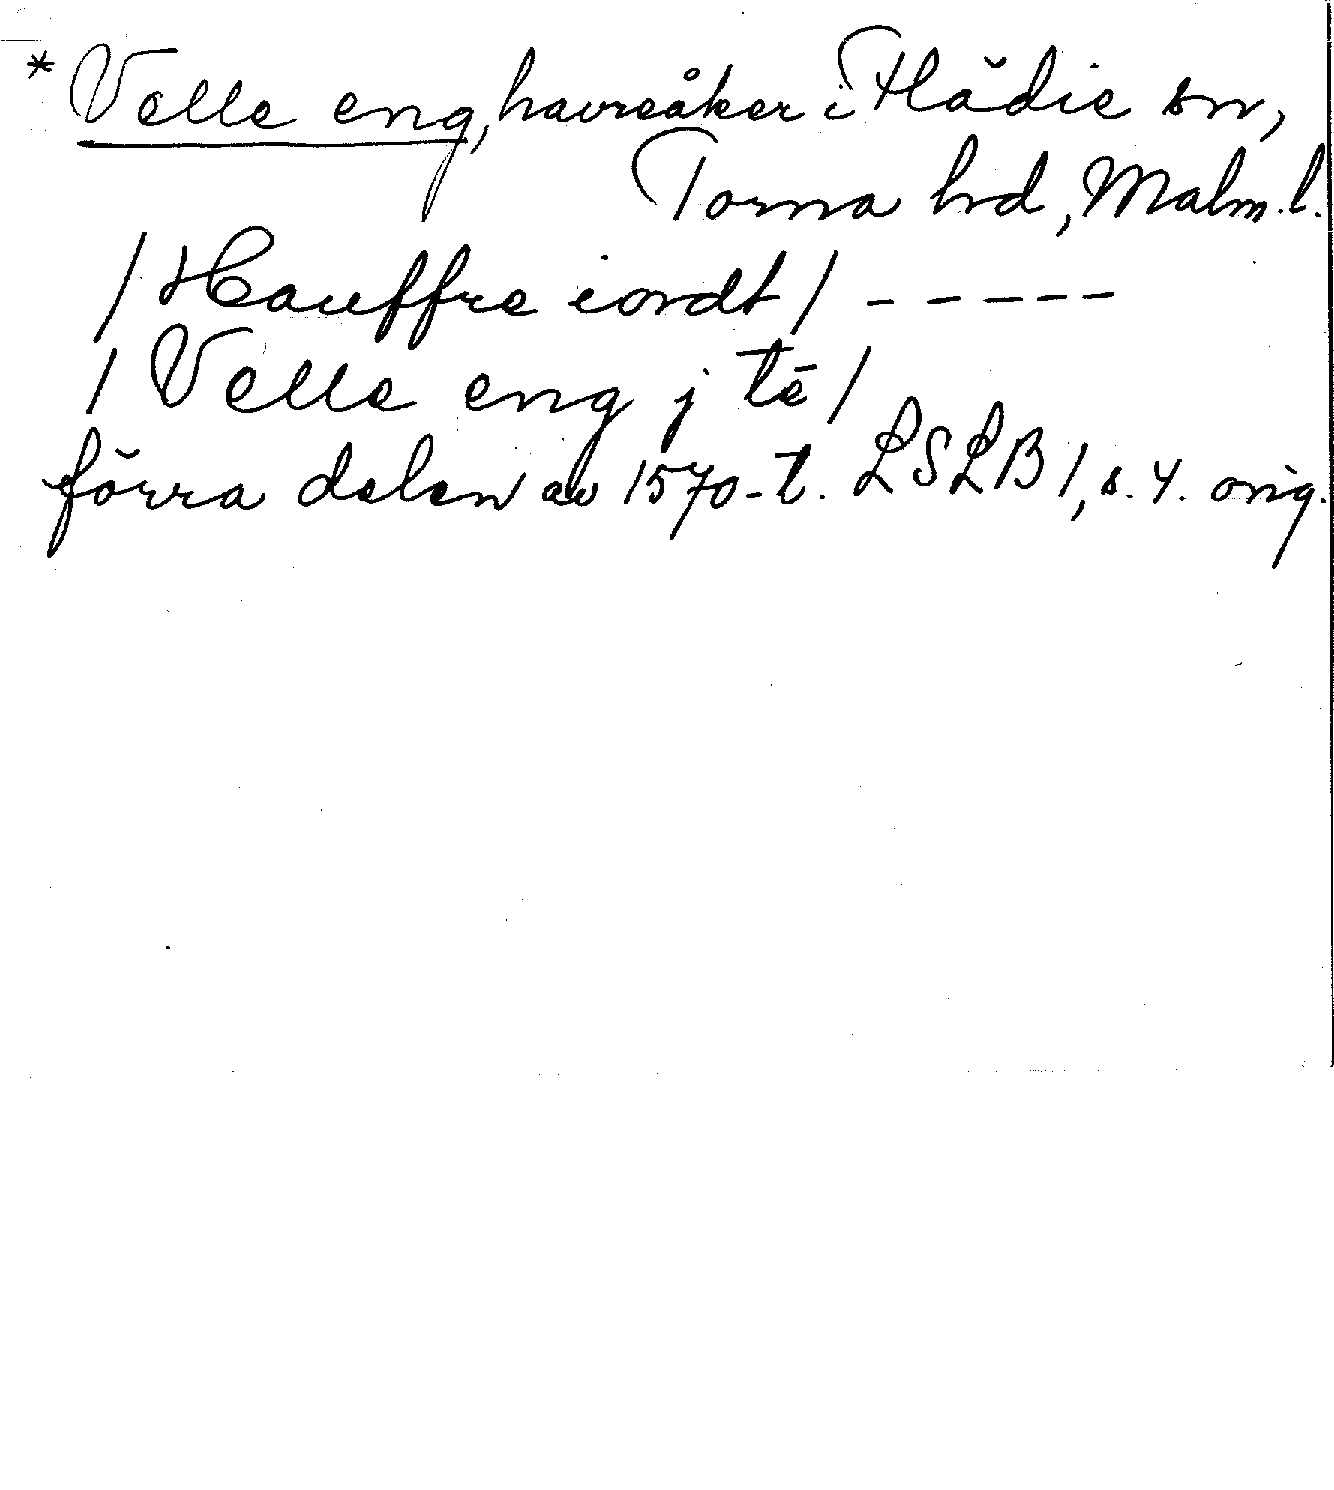 * Velle eng, havreåker i Flädie sn,
Torna hd, Malm. l.
/ Hauffre iordt / - - - - -
/ Velle eng j tē /
förra delen av 1570-t. LSLB 1, s. 4. orig.